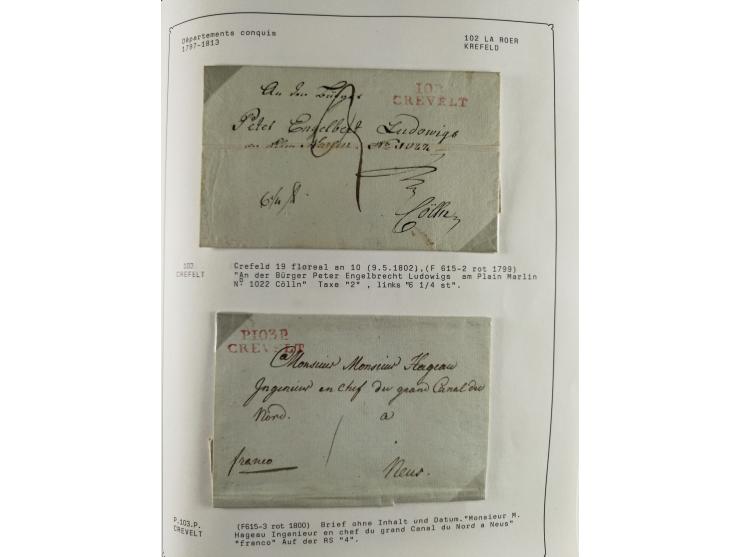 Départements conquis
1797-1813
102 LA ROER
KREFELD
An den Bürger
102
CREVELT
Peter Engelbert Ludowigs
No 1022
6 1/4 st
Cölln
103
CREFELT
Crefeld 19 floreal an 10 (9.5.1802),(F 615-2 rot 1799)
"An der Bürger Peter Engelbrecht Ludowigs am Plain Marlin
Nº 1022 Cölln" Taxe "2" , links "6 1/4 st".
P103P
CREVELT
a Monsieur Monsieur Hageau
Ingenieur en chef du grand Canal du
Nord. a
franco
Neus.
P.103.P.
CREVELT
(F615-3 rot 1800) Brief ohne Inhalt und Datum."Monsieur M.
Hageau Ingenieur en chef du grand Canal du Nord a Neus"
"franco" Auf der RS "4".